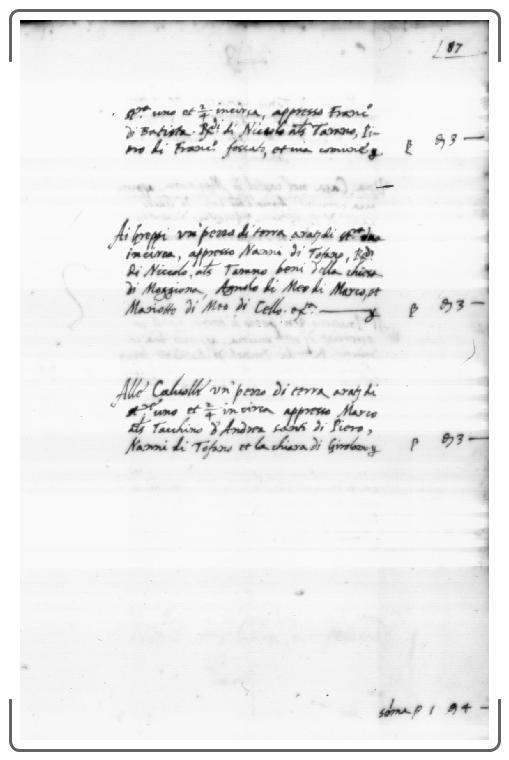 87
st.ra uno et 2/4 incirca, appresso Franc.o
di Batista. Rdi di Niccolo als Tarano, Pi-
ero di Franc.o foscati, et via comune
Ai Greppi un' pezzo di terra aratz di st.ra dua
incirca, appresso Nanni di Tofano, Rdi
di Niccolo, als Tarano beni della chiesa
di Moggiona, Agnolo di Meo di Marco, et
Mariotto di Meo di Cello.
Alle un' pezzo di terra aratz di
st.ra uno et 2/4 incirca appresso Marco
als Tacchino d'Andrea santi di Piero,
Nanni di Tofano et la chiara di